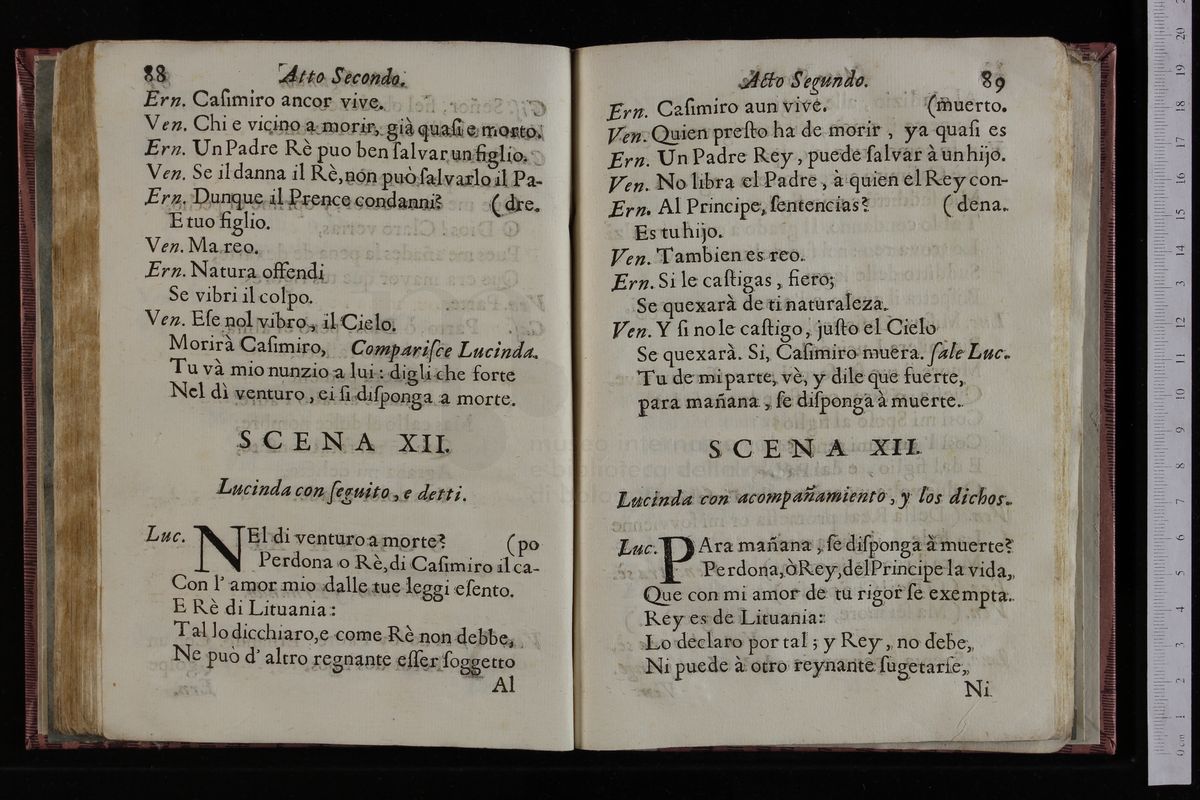 88 Atto Secondo.
Ern. Caſimiro ancor vive.
Ven. Chi e vicino a morir, già quaſi e morto.
Ern. Un Padre Rè puo ben ſalvar un figlio.
Ven. Se il danna il Rè, non può ſalvarlo il Pa-
Ern. Dunque il Prence condanni? (dre.
E tuo figlio.
Ven. Ma reo.
Ern. Natura offendi
Se vibri il colpo.
Ven. Eſe nol vibro, il Cielo.
Morirà Caſimiro, Compariſce Lucinda.
Tu và mio nunzio a lui: digli che forte
Nel dì venturo, ei ſi diſponga a morte.
SCENA XII.
Lucinda con ſeguito, e detti.
Luc. NEl di venturo a morte? (po
Perdona o Rè, di Caſimiro il ca-
Con l' amor mio dalle tue leggi eſento.
E Rè di Lituania:
Tal lo dicchiaro, e come Rè non debbe,
Ne può d' altro regnante eſſer ſoggetto
Al
Acto Segundo. 89
Ern. Caſimiro aun vive. (muerto.
Ven. Quien preſto ha de morir, ya quaſi es
Ern. Un Padre Rey, puede ſalvar à un hijo.
Ven. No libra el Padre, à quien el Rey con-
Ern. Al Principe, ſentencias? (dena.
Es tu hijo.
Ven. Tambien es reo.
Ern. Si le caſtigas, fiero;
Se quexarà de ti naturaleza.
Ven. Y ſi no le caſtigo, juſto el Cielo
Se quexarà. Si, Caſimiro muera. ſale Luc.
Tu de mi parte, vè, y dile que fuerte,
para mañana, ſe diſponga à muerte.
SCENA XII.
Lucinda con acompañamiento, y los dichos.
Luc. PAra mañana, ſe diſponga à muerte?
Perdona, ò Rey, del Principe la vida,
Que con mi amor de tu rigor ſe exempta.
Rey es de Lituania:
Lo declaro por tal; y Rey, no debe,
Ni puede à otro reynante ſugetarſe,
Ni